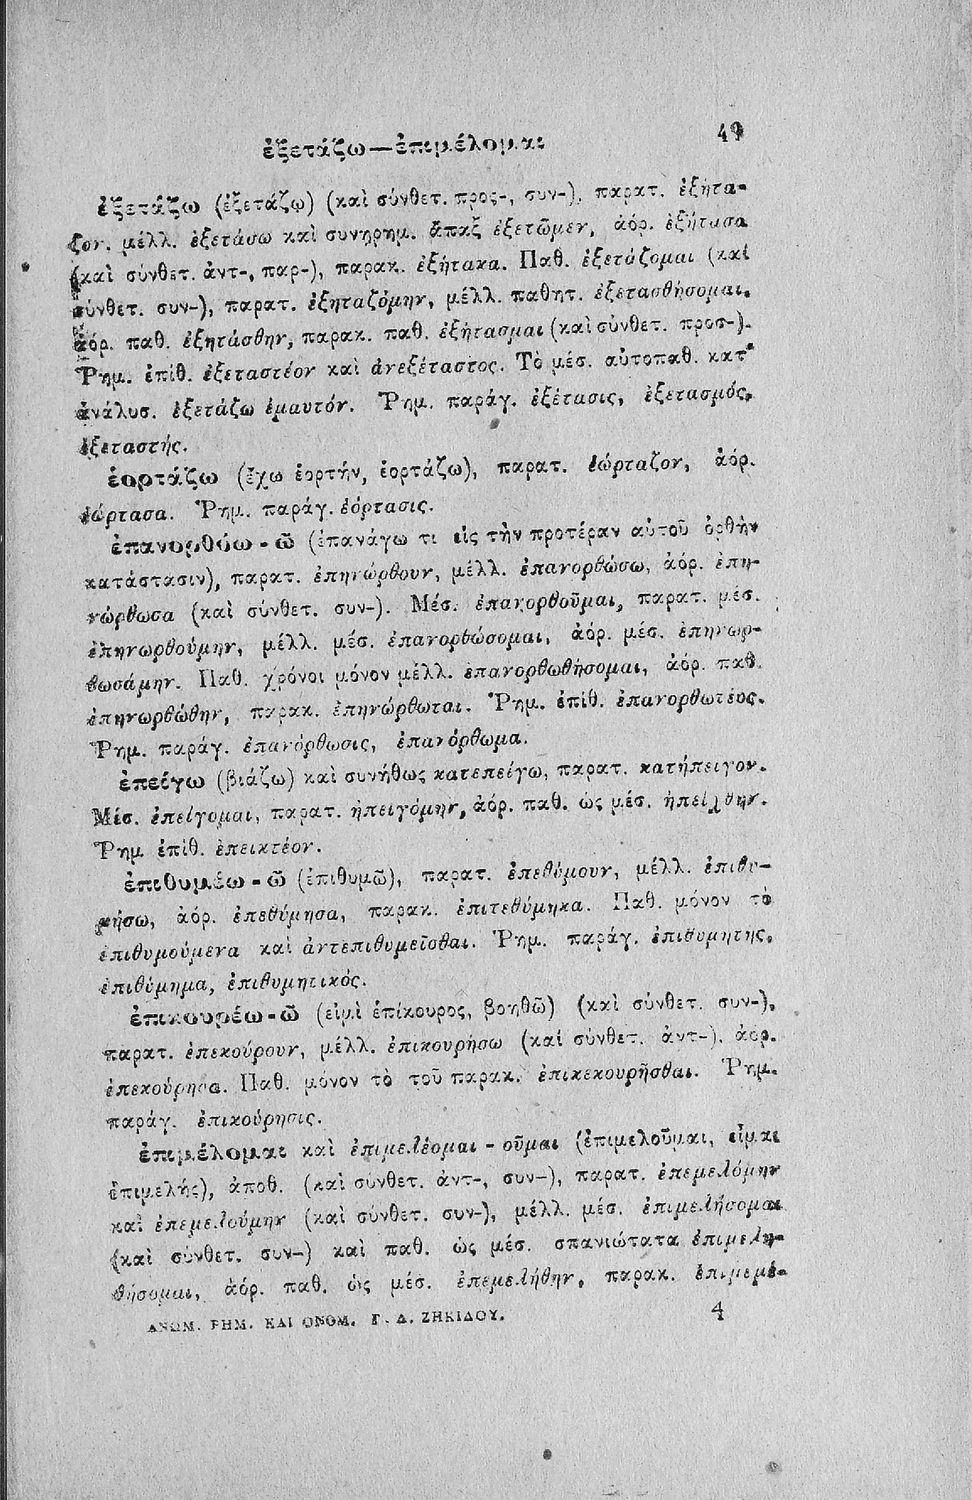 ἐξετάζω—ἐπιμέλομαι 49
ἐξετάζω (ἐξετάζω) (καὶ σύνθετ. προς-, συν-), παρατ. ἐξήτα-
ζον. μέλλ. ἐξετάσω καὶ συνηρημ. ἅπαξ ἐξετῶμεν, ἀόρ. ἐξήτασα
(καὶ σύνθετ. ἀντ-, παρ-), παρακ. ἐξήτακα. Παθ. ἐξετάζομαι (καὶ
σύνθετ. συν-), παρατ. ἐξηταζόμην, μέλλ. παθητ. ἐξετασθήσομαι,
ἀόρ. παθ. ἐξητάσθην, παρακ. παθ. ἐξήτασμαι (καὶ σύνθετ. προσ-).
Ῥημ. ἐπίθ. ἐξεταστέον καὶ ἀνεξέταστος. Τὸ μέσ. αὐτοπαθ. κατ'
ἀνάλυσ. ἐξετάζω ἐμαυτόν. Ῥημ. παράγ. ἐξέτασις, ἐξετασμός,
ἐξεταστής.
ἑορτάζω (ἔχω ἑορτήν, ἑορτάζω), παρατ. ἑώρταζον, ἀόρ.
ἑώρτασα. Ῥημ. παράγ. ἑόρτασις.
ἐπανορθόω-ῶ (ἐπανάγω τι εἰς τὴν προτέραν αὐτοῦ ὀρθὴν
κατάστασιν), παρατ. ἐπηνώρθουν, μέλλ. ἐπανορθώσω, ἀόρ. ἐπη-
νώρθωσα (καὶ σύνθετ. συν-). Μέσ. ἐπανορθοῦμαι, παρατ. μέσ.
ἐπηνωρθούμην, μέλλ. μέσ. ἐπανορθώσομαι, ἀόρ. μέσ. ἐπηνωρ-
θωσάμην. Παθ. χρόνοι μόνον μέλλ. ἐπανορθωθήσομαι, ἀόρ. παθ.
ἐπηνωρθώθην, παρακ. ἐπηνώρθωται. Ῥημ. ἐπίθ. ἐπανορθωτέος.
Ῥημ. παράγ. ἐπανόρθωσις, ἐπανόρθωμα.
ἐπείγω (βιάζω) καὶ συνήθως κατεπείγω, παρατ. κατήπειγον.
Μέσ. ἐπείγομαι, παρατ. ἠπειγόμην, ἀόρ. παθ. ὡς μέσ. ἠπείχθην.
Ῥημ ἐπίθ. ἐπεικτέον.
ἐπιθυμέω-ῶ (ἐπιθυμῶ), παρατ. ἐπεθύμουν, μέλλ. ἐπιθυ-
μήσω, ἀόρ. ἐπεθύμησα, παρακ. ἐπιτεθύμηκα. Παθ. μόνον τὸ
ἐπιθυμούμενα καὶ ἀντεπιθυμεῖσθαι. Ῥημ. παράγ. ἐπιθυμητής,
ἐπιθύμημα, ἐπιθυμητικός.
ἐπικουρέω-ῶ (εἰμὶ ἐπίκουρος, βοηθῶ) (καὶ σύνθετ. συν-),
παρατ. ἐπεκούρουν, μέλλ. ἐπικουρήσω (καὶ σύνθετ. ἀντ-), ἀόρ.
ἐπεκούρησα. Παθ. μόνον τὸ τοῦ παρακ. ἐπικεκουρῆσθαι. Ῥημ.
παράγ. ἐπικούρησις.
ἐπιμέλομαι καὶ ἐπιμελέομαι - οῦμαι (ἐπιμελοῦμαι, εἶμαι
ἐπιμελής), ἀποθ. (καὶ σύνθετ. ἀντ-, συν-), παρατ. ἐπεμελόμην
καὶ ἐπεμελούμην (καὶ σύνθετ. συν-), μέλλ. μέσ. ἐπιμελήσομαι
(καὶ σύνθετ. συν-) καὶ παθ. ὡς μέσ. σπανιώτατα ἐπιμελη-
θήσομαι, ἀόρ. παθ. ὡς μέσ. ἐπεμελήθην, παρακ. ἐπιμεμέ-
ΑΝΩΜ. ΡΗΜ. ΚΑΙ ΟΝΟΜ. Γ. Δ. ΖΗΚΙΔΟΥ. 4